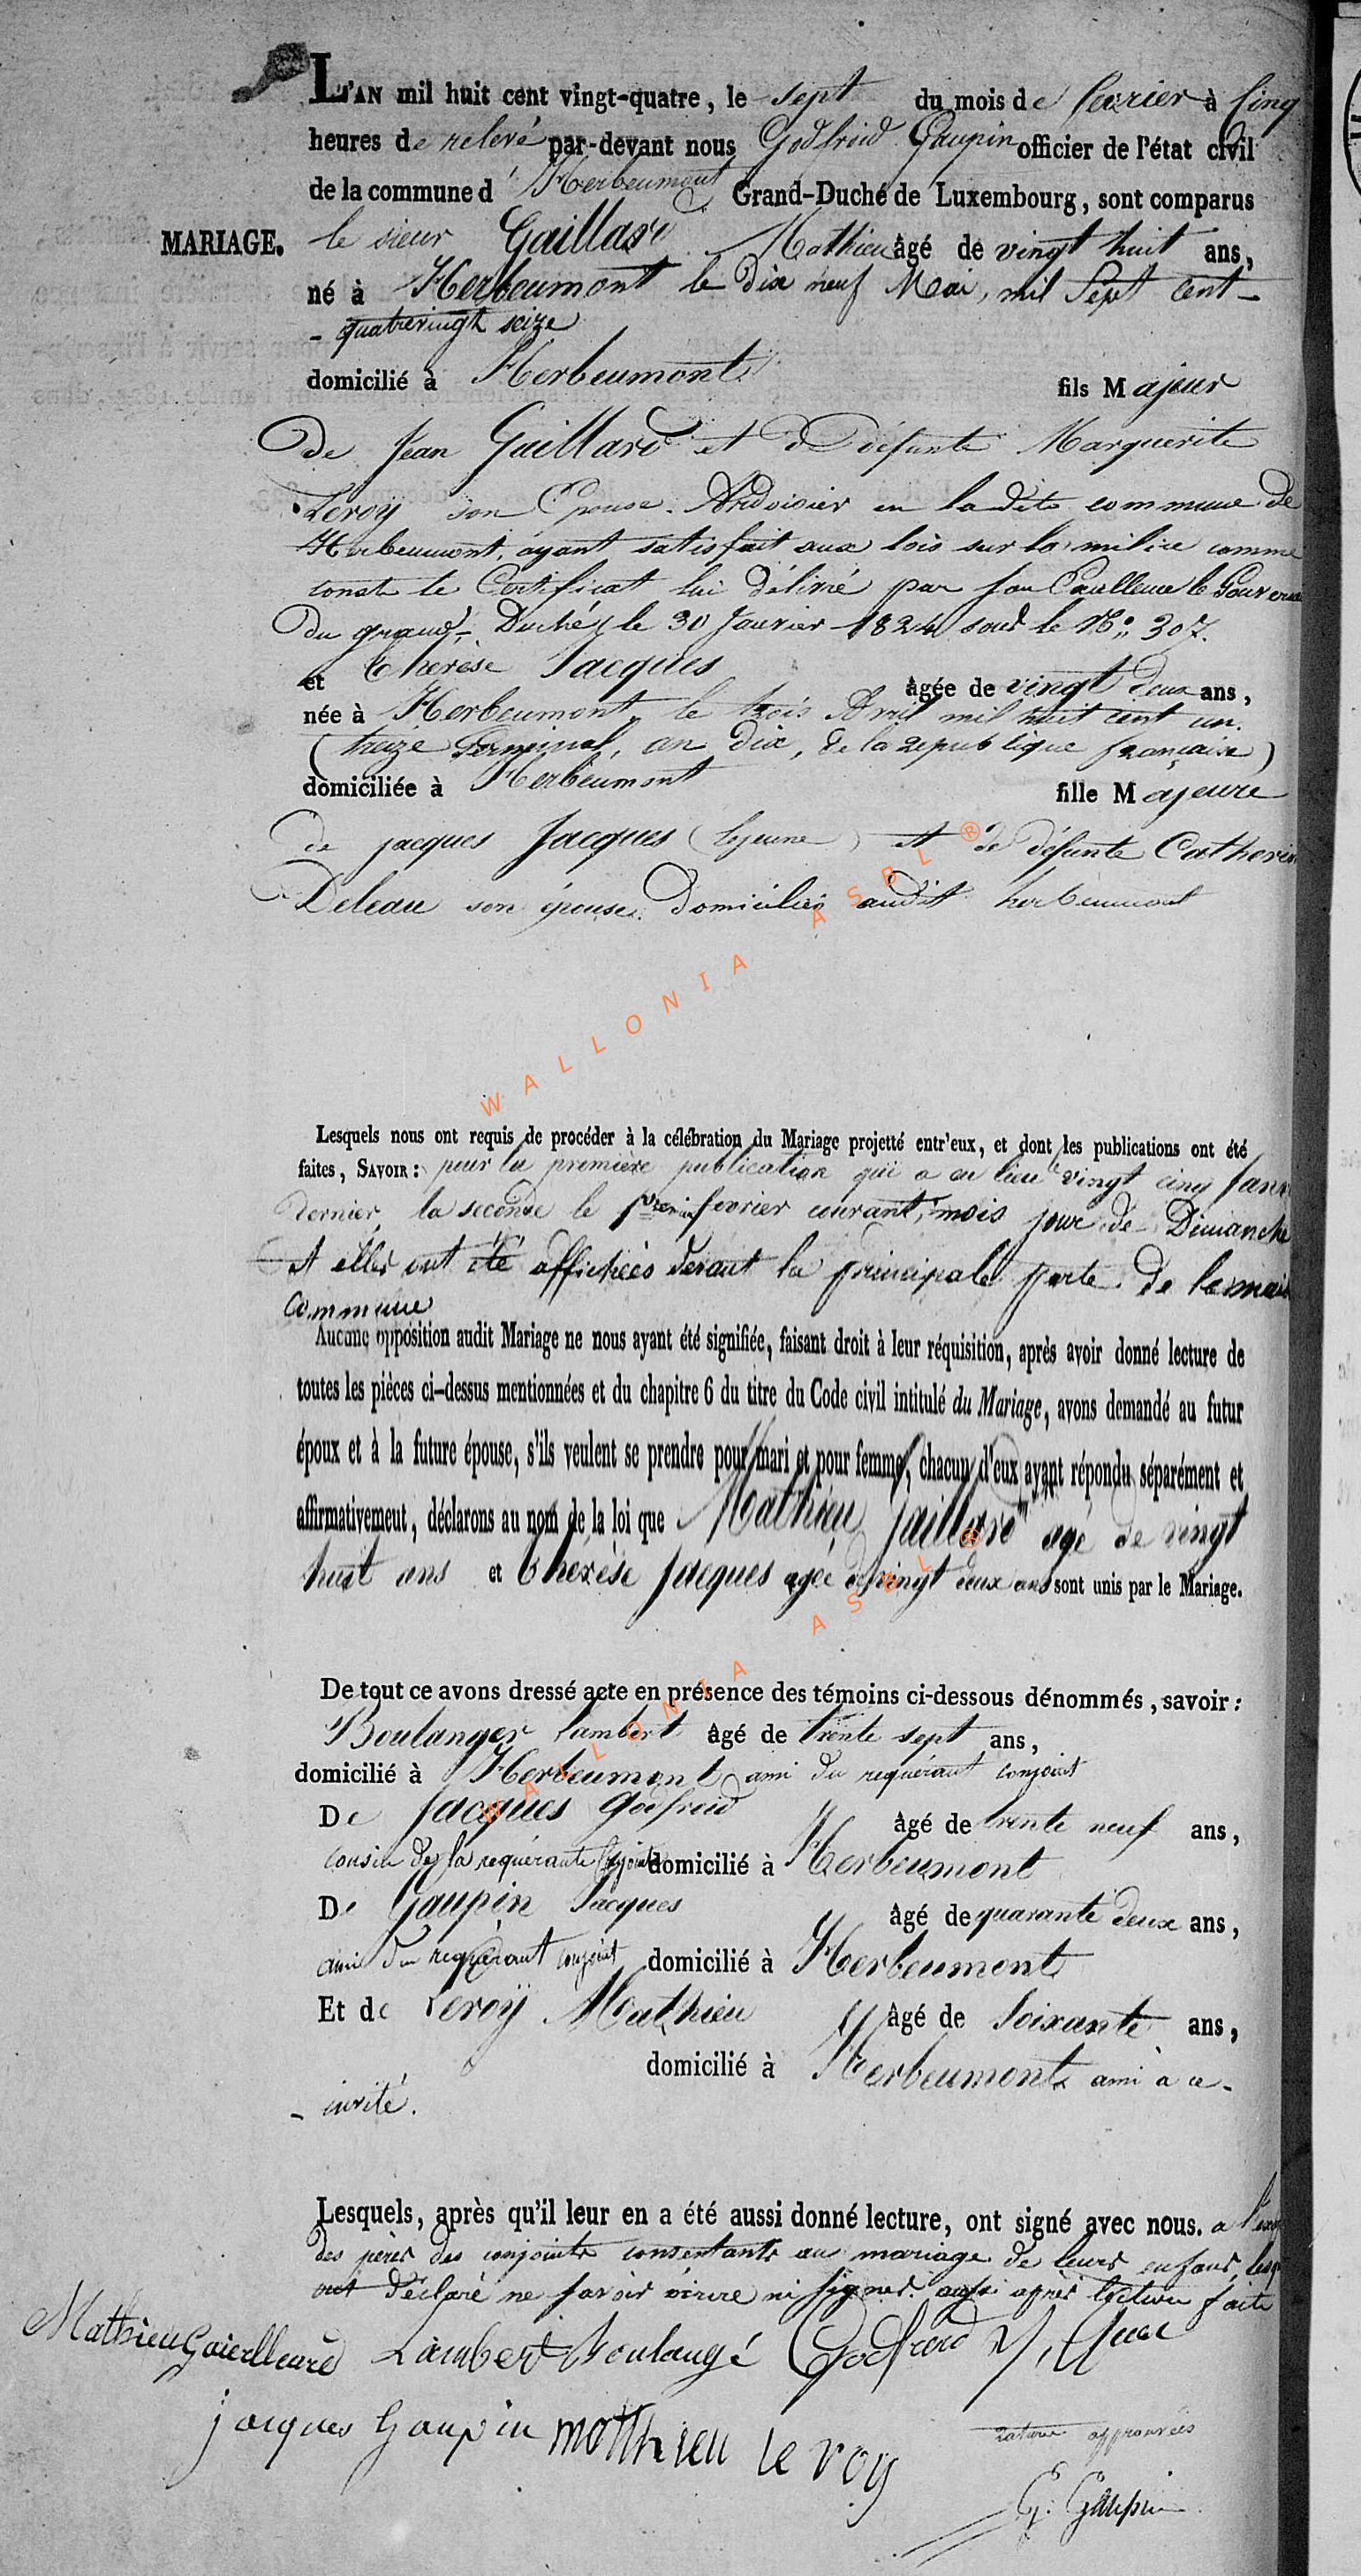 L'AN mil huit cent vingt-quatre, le sept du mois de fevrier à cinq
heures de relevé par-devant nous Godfroid Gaupin officier de l'état civil
de la commune d'Herbeumont Grand-Duché de Luxembourg, sont comparus
MARIAGE. le sieur Gaillard Mathieu âgé de vingt huit ans,
né à Herbeumont le dix neuf Mai, mil Sept cent-
- quatrevingt seize
domicilié à Herbeumont fils Majeur
De Jean Gaillard et de défunte Marguerite
Leroy son Epouse. Ardoisier en la dite commune de
Herbeumont, ayant satisfait aux lois sur la milice comme
conste le Certificat lui délivré par son Excellence le Gouverneur
Du grand-Duché, le 30 Janvier 1824 sous le No. 307.
et Therèse Jacques âgée de vingt deux ans,
née à Herbeumont le trois Avril mil huit cent un.
(treize Germinal, an dix, de la republique française)
domiciliée à Herbeumont fille Majeure
de jacques Jacques (lejeune) et de défunte Catherine
Deleau son épouse. Domiciliés audit herbeumont
WALLONIA ASBL ®
Lesquels nous ont requis de procéder à la célébration du Mariage projetté entr'eux, et dont les publications ont été
faites, SAVOIR : pour la première publication qui a eu lieu vingt cinq Janv
dernier, la seconde le premier fevrier courant, mois jour de Dimanche
et elles ont été affichées devant la principale porte de la mais
commune
Aucune opposition audit Mariage ne nous ayant été signifiée, faisant droit à leur réquisition, après avoir donné lecture de
toutes les pièces ci-dessus mentionnées et du chapitre 6 du titre du Code civil intitulé du Mariage, avons demandé au futur
époux et à la future épouse, s'ils veulent se prendre pour mari et pour femme, chacun d'eux ayant répondu séparément et
affirmativement, déclarons au nom de la loi que Mathieu Gaillard agé de vingt
huit ans et Therèse Jacques agée de vingt deux ans sont unis par le Mariage.
WALLONIA ASBL ®
De tout ce avons dressé acte en présence des témoins ci-dessous dénommés, savoir :
Boulanger Lambert âgé de trente sept ans,
domicilié à Herbeumont ami du requérant conjoint
De Jacques Godfroid âgé de trente neuf ans,
cousin de la requérante domicilié à Herbeumont
De Gaupin Jacques âgé de quarante deux ans,
ami du requérant conjoint domicilié à Herbeumont
Et de Leroÿ Mathieu âgé de Soixante ans,
domicilié à Herbeumont ami à ce-
- invité.
Lesquels, après qu'il leur en a été aussi donné lecture, ont signé avec nous. a l'ex
des pères des conjoints consentants au mariage de leurs enfans, lesq
ont déclaré ne savoir écrire ni signer. aussi après lecture faite
Mathieu Gaierlleard Lambert Boulangé Godfroid
jacques Gaupin matthieu le roy
rature approuvées
G. Gaupin